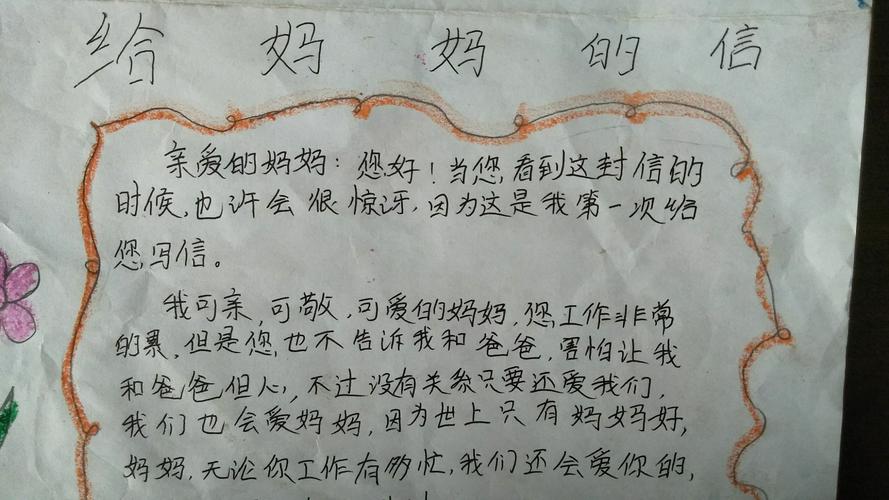 给妈妈的信
亲爱的妈妈：您好！当您看到这封信的
时候，也许会很惊讶，因为这是我第一次给
您写信。
我可亲，可敬，可爱的妈妈，您工作非常
的累，但是您也不告诉我和爸爸，害怕让我
和爸爸但心，不过没有关系只要还爱我们，
我们也会爱妈妈，因为世上只有妈妈好，
妈妈，无论你工作有多忙，我们还会爱你的，